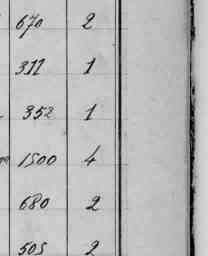 670 2
311 1
352 1
1500 4
680 2
505 2